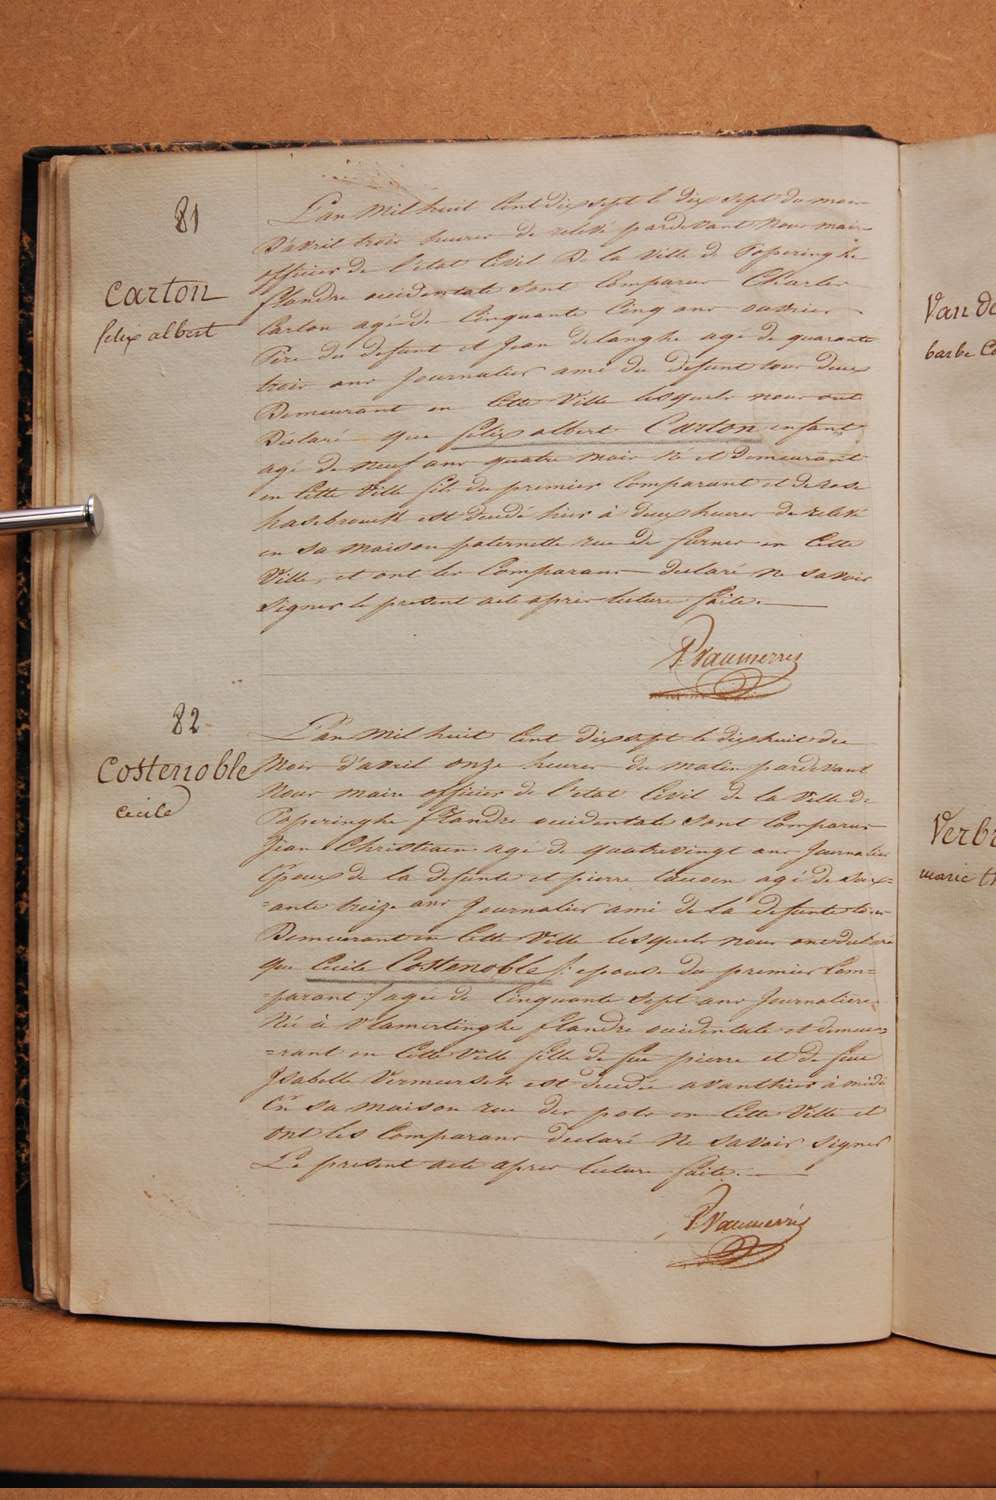 81
Carton
felix albert
L'an Mil huit Cent dix sept le dix sept du mois
D'avril trois heures de relevé pardevant Nous maire
officier de l'état Civil De la Ville de Poperinghe
flandre occidentale sont Comparus Charles
Carton agé de Cinquante Cinq ans ouvrier
Pere du defunt et Jean Delanghe agé de quarante
trois ans Journalier ami du Defunt tous deux
Demeurant en Cette Ville lesquels nous ont
Déclaré que felix albert Carton enfant
agé de neuf ans quatre mois né et demeurant
en Cette Ville fils du premier Comparant et de rose
hasebrouck est decedé hier à deux heures de relevé
en sa maison paternelle rue de furnes en Cette
Ville, et ont les Comparans declaré ne savoir
signer le present acte apres lecture faite.
82
Costenoble
cecile
L'an Mil huit Cent dix sept le dix huit du
Mois d'avril onze heures du matin pardevant
Nous maire officier de l'etat Civil de la Ville de
Poperinghe flandre occidentale sont Comparus
Jean Christiaen agé de quatrevingt ans Journalier
Epoux de la defunte et pierre agé de soix=
=ante treize ans Journalier ami de la defunte
Demeurant en Cette Ville lesquels nous ont declaré
que Cecile Costenoble /: epouse du premier Com=
=parant :/ agée de Cinquante sept ans Journaliere
Née à Vlamertinghe flandre occidentale et demeu=
=rant en Cette Ville fille de feu pierre et de feue
Isabelle Vermeersch est decedée avanthier à midi
En sa maison rue des pots en Cette Ville et
Ont les Comparans declaré ne savoir signer
Le present acte apres lecture faite.
Van
barbe
Verb
marie